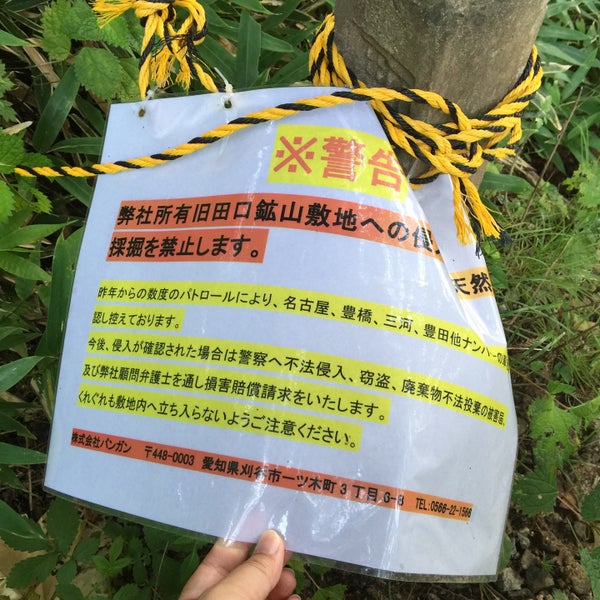 ※警告
弊社所有旧田口鉱山敷地への侵
採掘を禁止します。
天然
昨年からの数度のパトロールにより、名古屋、豊橋、三河、豊田他ナンバーの
認し控えております。
今後、侵入が確認された場合は警察へ不法侵入、窃盗、廃棄物不法投棄の被害届、
及び弊社顧問弁護士を通し損害賠償請求をいたします。
くれぐれも敷地内へ立ち入らないようご注意ください。
株式会社バンガン 〒448-0003 愛知県刈谷市一ツ木町3丁目6-8 TEL:0566-22-1566